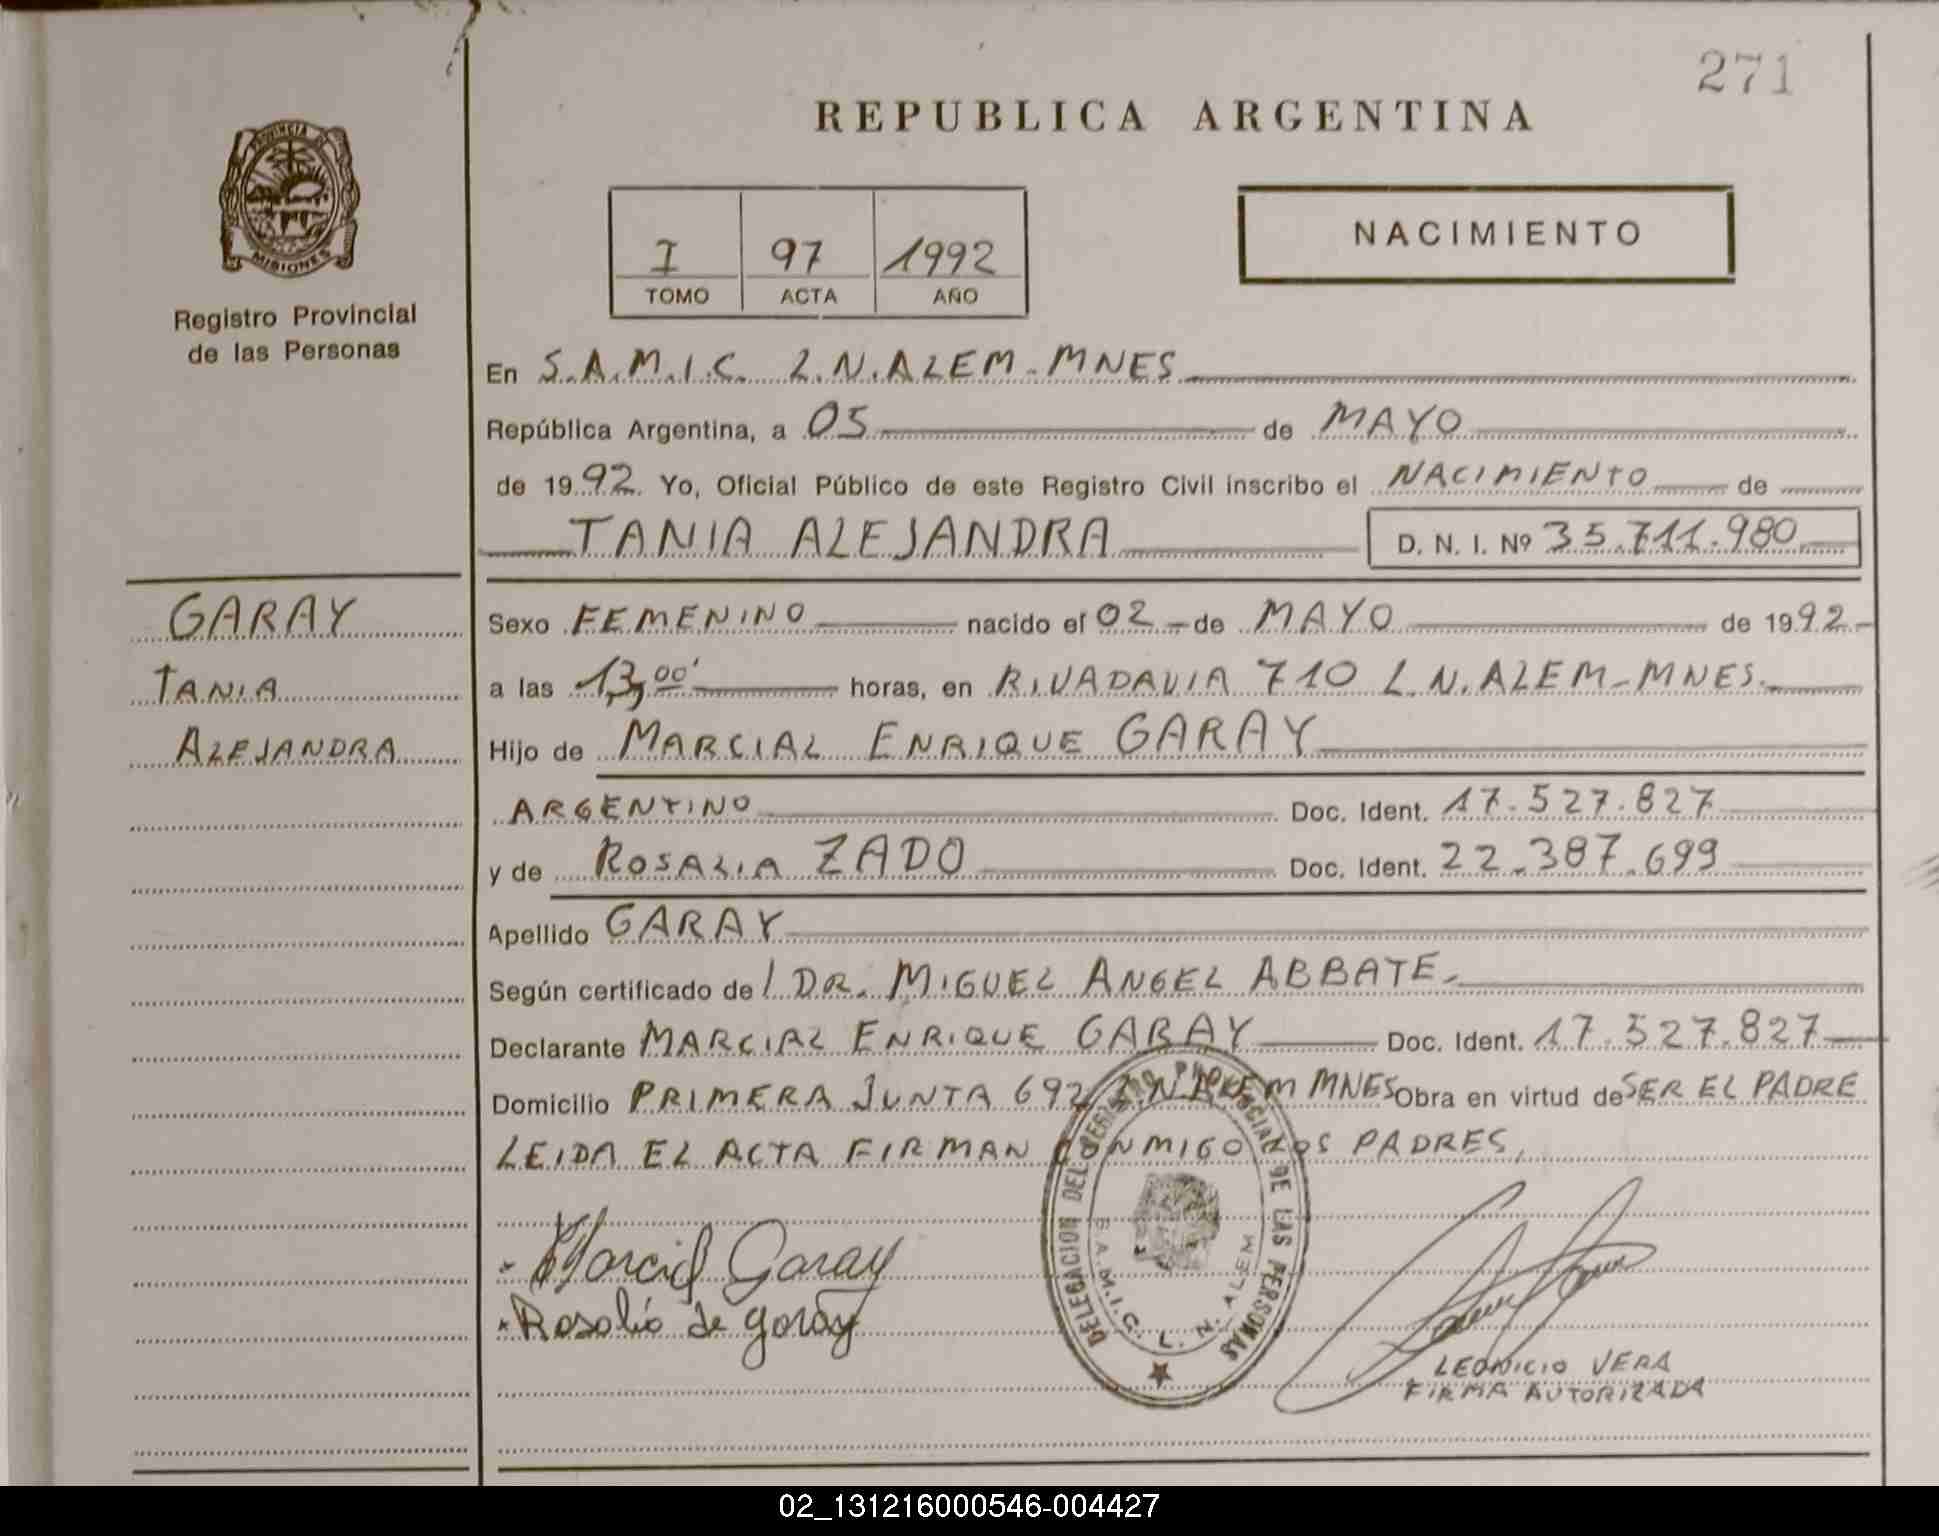 271
REPUBLICA ARGENTINA
PROVINCIA
MISIONES
Registro Provincial
de las Personas
I 97 1992
TOMO ACTA AÑO
NACIMIENTO
En S.A.M.I.C. L.N.ALEM-MNES
República Argentina, a 05 de MAYO
de 1992. Yo, Oficial Público de este Registro Civil inscribo el NACIMIENTO de
TANIA ALEJANDRA D. N. I. Nº 35.711.980
GARAY
TANIA
ALEJANDRA
Sexo FEMENINO nacido el 02 de MAYO de 1992
a las 13,00' horas, en RIVADAVIA 710 L.N.ALEM-MNES.
Hijo de MARCIAL ENRIQUE GARAY
ARGENTINO Doc. Ident. 17.527.827
y de ROSALIA ZADO Doc. Ident. 22.387.699
Apellido GARAY
Según certificado de l DR. MIGUEL ANGEL ABBATE.
Declarante MARCIAL ENRIQUE GARAY Doc. Ident. 17.527.827
Domicilio PRIMERA JUNTA 692 L.N.ALEM MNES Obra en virtud de SER EL PADRE
LEIDA EL ACTA FIRMAN CONMIGO LOS PADRES,
Marcial Garay
Rosalia de garay
DELEGACION DEL REGISTRO PROVINCIAL DE LAS PERSONAS
S.A.M.I.C. L. N. ALEM
LEONICIO VERA
FIRMA AUTORIZADA
02_131216000546-004427